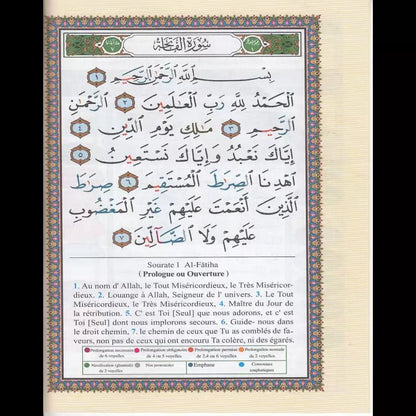 سُورَةُ الفَاتِحَةِ
بِسْمِ اللَّهِ الرَّحْمَٰنِ الرَّحِيمِ ١
الْحَمْدُ لِلَّهِ رَبِّ الْعَالَمِينَ ٢ الرَّحْمَٰنِ
الرَّحِيمِ ٣ مَالِكِ يَوْمِ الدِّينِ ٤
إِيَّاكَ نَعْبُدُ وَإِيَّاكَ نَسْتَعِينُ ٥
اهْدِنَا الصِّرَاطَ الْمُسْتَقِيمَ ٦ صِرَاطَ
الَّذِينَ أَنْعَمْتَ عَلَيْهِمْ غَيْرِ الْمَغْضُوبِ
عَلَيْهِمْ وَلَا الضَّالِّينَ ٧
Sourate 1 Al-Fâtiha
(Prologue ou Ouverture)
1. Au nom d' Allah, le Tout Miséricordieux, le Très Miséricor-
dieux. 2. Louange à Allah, Seigneur de l' univers. 3. Le Tout
Miséricordieux, le Très Miséricordieux, 4. Maître du Jour de
la rétribution. 5. C' est Toi [Seul] que nous adorons, et c' est
Toi [Seul] dont nous implorons secours. 6. Guide- nous dans
le droit chemin, 7. le chemin de ceux que Tu as comblés de fa-
veurs, non pas de ceux qui ont encouru Ta colère, ni des égarés.
Prolongation nécessaire de 6 voyelles
Prolongation obligatoire de 4 ou 5 voyelles
Prolongation permise de 2,4 ou 6 voyelles
Prolongation normale de 2 voyelles
Nasalisation (ghunnah) de 2 voyelles
Non prononcées
Emphase
Consonnes emphatiques